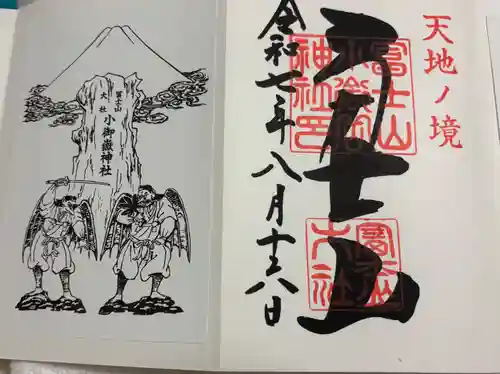 天地ノ境
富士山
富士山
小御嶽
神社印
令和七年八月十六日
冨士山
大社
小御嶽神社